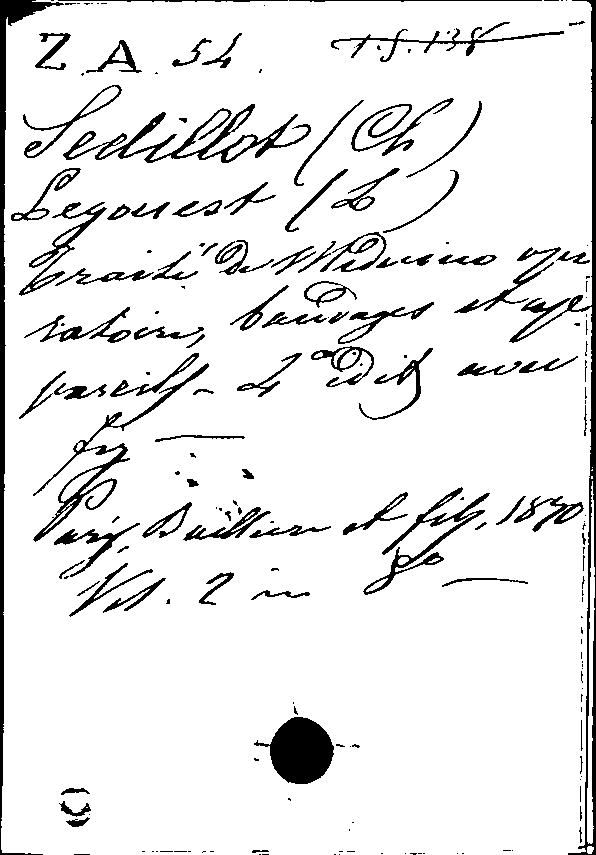 Z A 54. 1.8.138
Sedillot (Ch)
Legouest (L)
Traité de Médecine opé
ratoire, bandages et ap
pareils - 4ª édit avec
fig —
Paris, Baillière et fils, 1870
Vol. 2 in 8º —